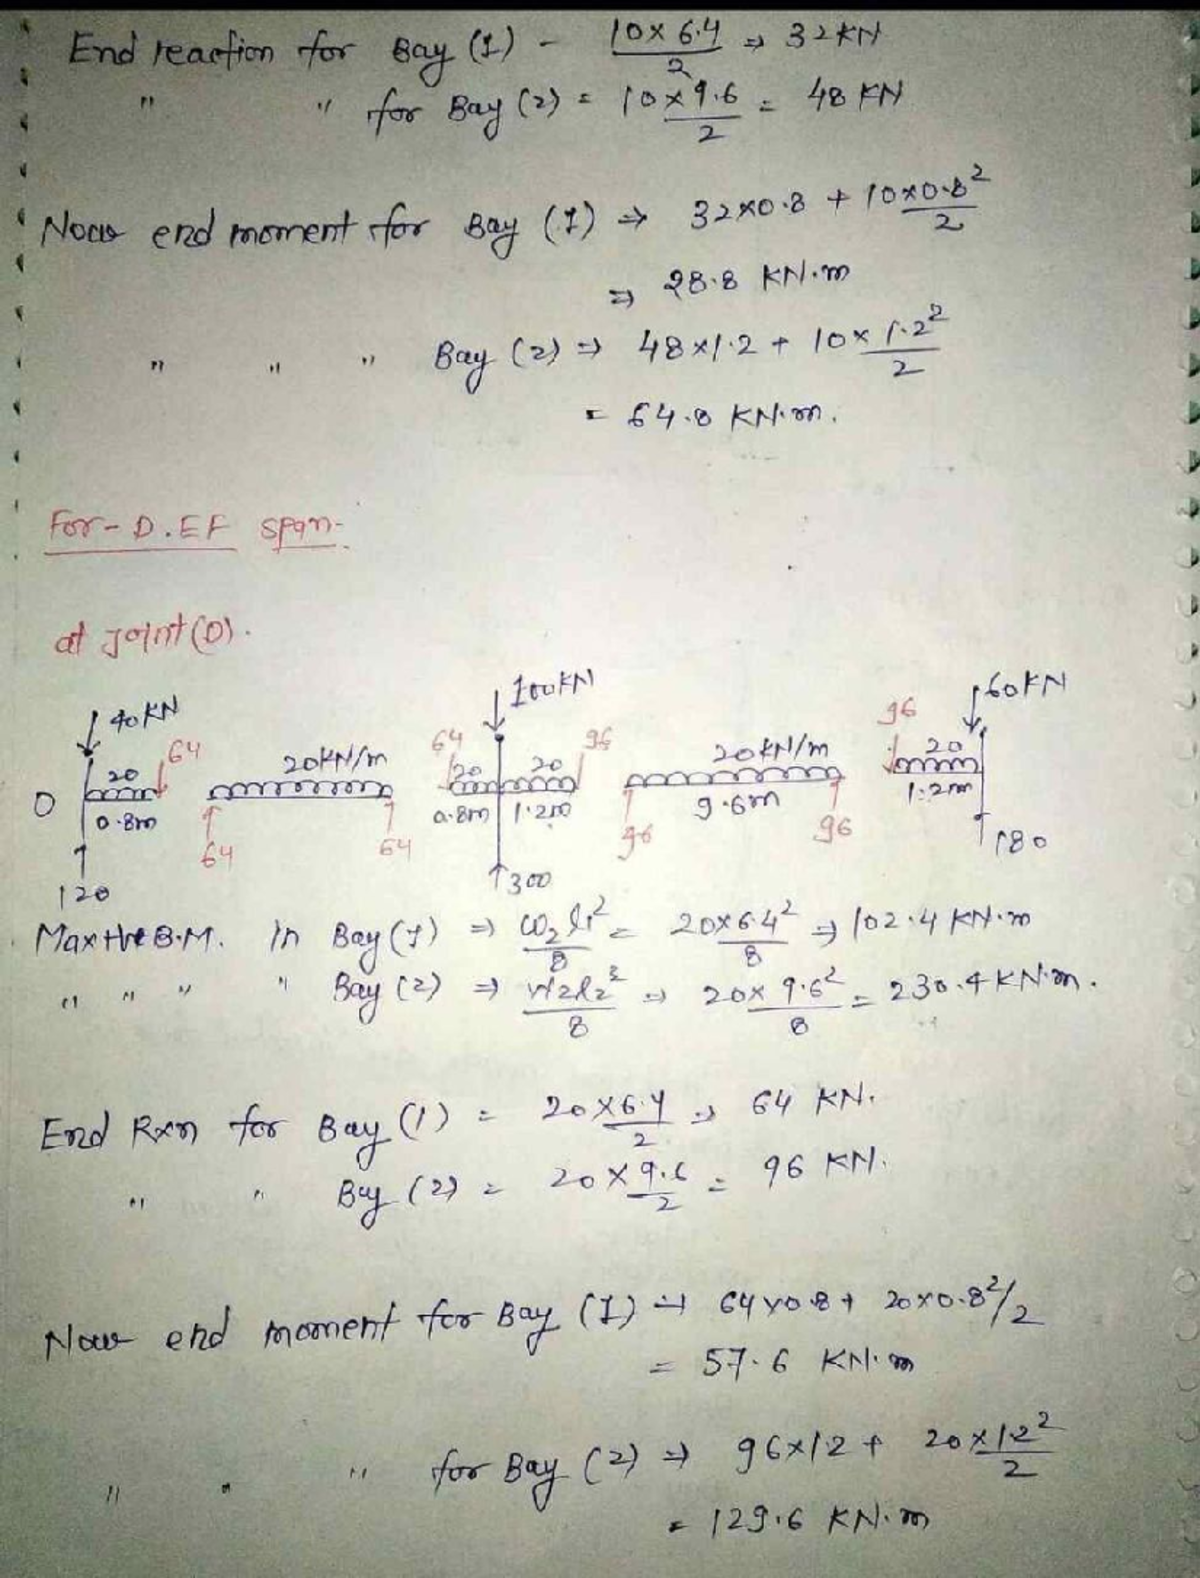 End reaction for Bay (1) - 10 x 6.4 / 2 => 32 KN
" " for Bay (2) = 10 x 9.6 / 2 = 48 KN
Now end moment for Bay (1) => 32 x 0.8 + 10 x 0.8² / 2
=> 28.8 KN.m
" " " Bay (2) => 48 x 1.2 + 10 x 1.2² / 2
= 64.8 KN.m.
For - D.EF span-
at joint (D).
40 KN 100 KN 60 KN
64 64 96 96
20 20 KN/m 20 20 20 KN/m 20
D 0.8m 0.8m 1.2m 9.6m 1.2m
64 64 96 96
120 300 180
Max +ve B.M. In Bay (1) => ω₂l₁² / 8 = 20 x 6.4² / 8 => 102.4 KN.m
" " " " Bay (2) => w₂l₂² / 8 => 20 x 9.6² / 8 = 230.4 KN.m.
End Rxn for Bay (1) = 20 x 6.4 / 2 => 64 KN.
" " Bay (2) = 20 x 9.6 / 2 = 96 KN.
Now end moment for Bay (1) => 64 x 0.8 + 20 x 0.8²/2
= 57.6 KN.m
" " " for Bay (2) => 96 x 1.2 + 20 x 1.2² / 2
= 129.6 KN.m